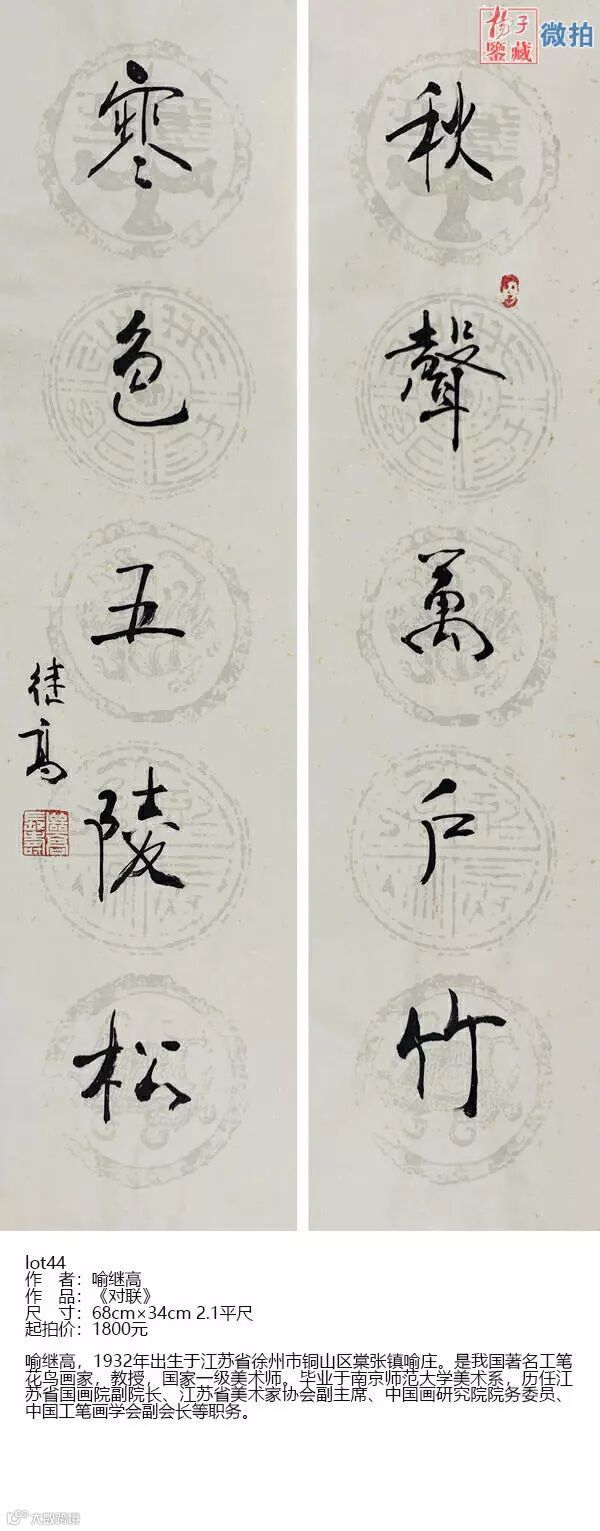 杨子
鉴藏
微拍
秋聲萬户竹
寒色五陵松
继高
lot44
作 者：喻继高
作 品：《对联》
尺 寸：68cm×34cm 2.1平尺
起拍价：1800元
喻继高，1932年出生于江苏省徐州市铜山区棠张镇喻庄。是我国著名工笔
花鸟画家，教授，国家一级美术师。毕业于南京师范大学美术系，历任江
苏省国画院副院长、江苏省美术家协会副主席、中国画研究院院务委员、
中国工笔画学会副会长等职务。